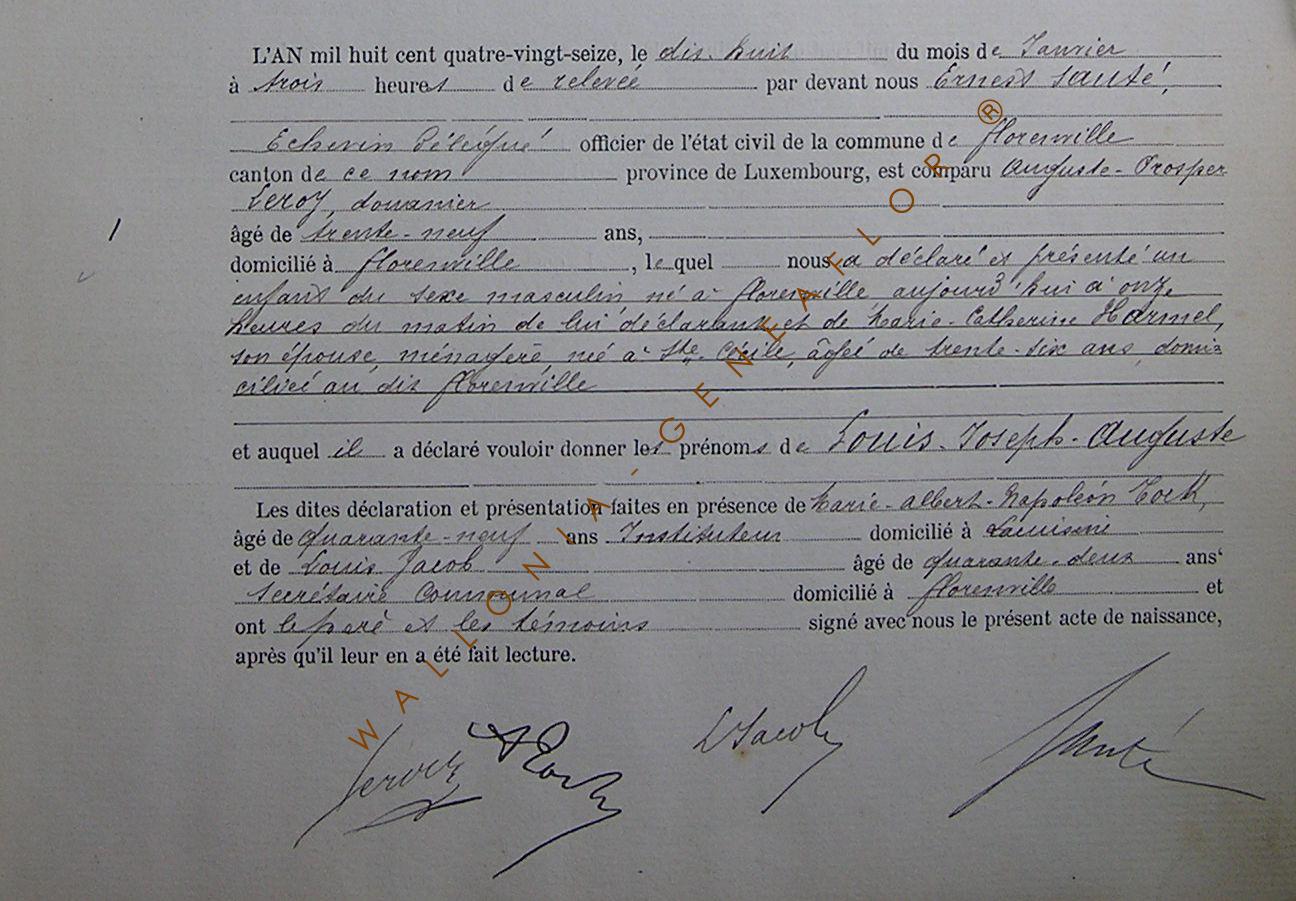 L'AN mil huit cent quatre-vingt-seize, le dix huit du mois de Janvier
à trois heures de relevée par devant nous Ernest Santé,
Echevin Délégué officier de l'état civil de la commune de florenville
canton de ce nom province de Luxembourg, est comparu Auguste-Prosper
Leroy, douanier
1
âgé de trente-neuf ans,
domicilié à florenville, lequel nous a déclaré et présenté un
enfant du sexe masculin né à florenville aujourd'hui à onze
heures du matin de lui déclarant et de Marie-Catherine Harmel,
son épouse, ménagère, née à Ste Cécile, âgée de trente-six ans, domi-
ciliée au dit florenville
et auquel il a déclaré vouloir donner les prénoms de Louis-Joseph-Auguste
Les dites déclaration et présentation faites en présence de Marie-Albert-Napoléon Hock,
âgé de quarante-neuf ans Instituteur domicilié à
et de Louis Jacob âgé de quarante-deux ans
Secrétaire Communal domicilié à florenville et
ont le père et les témoins signé avec nous le présent acte de naissance,
après qu'il leur en a été fait lecture.
Leroy AHock LJacob Santé
WALLONIA-GENEAFLOR®